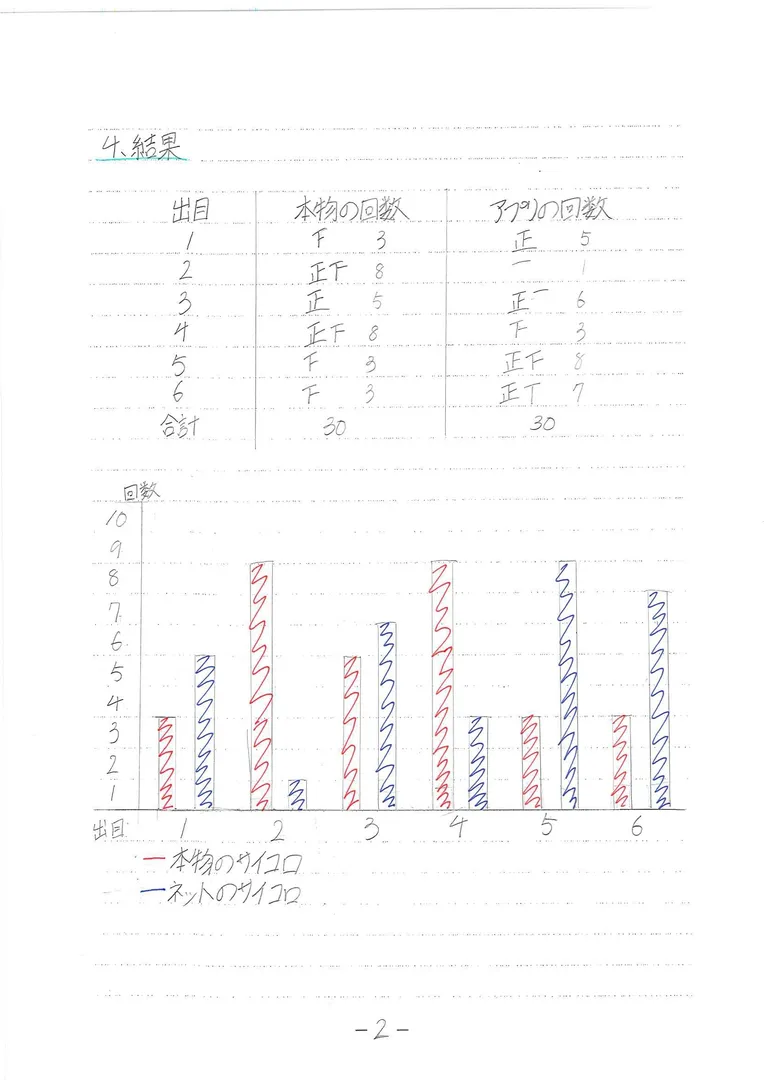 4、結果
出目 本物の回数 アプリの回数
1 下 3 正 5
2 正下 8 一 1
3 正 5 正一 6
4 正下 8 下 3
5 下 3 正下 8
6 下 3 正丅 7
合計 30 30
回数
10
9
8
7
6
5
4
3
2
1
出目 1 2 3 4 5 6
ー本物のサイコロ
ーネットのサイコロ
-2-